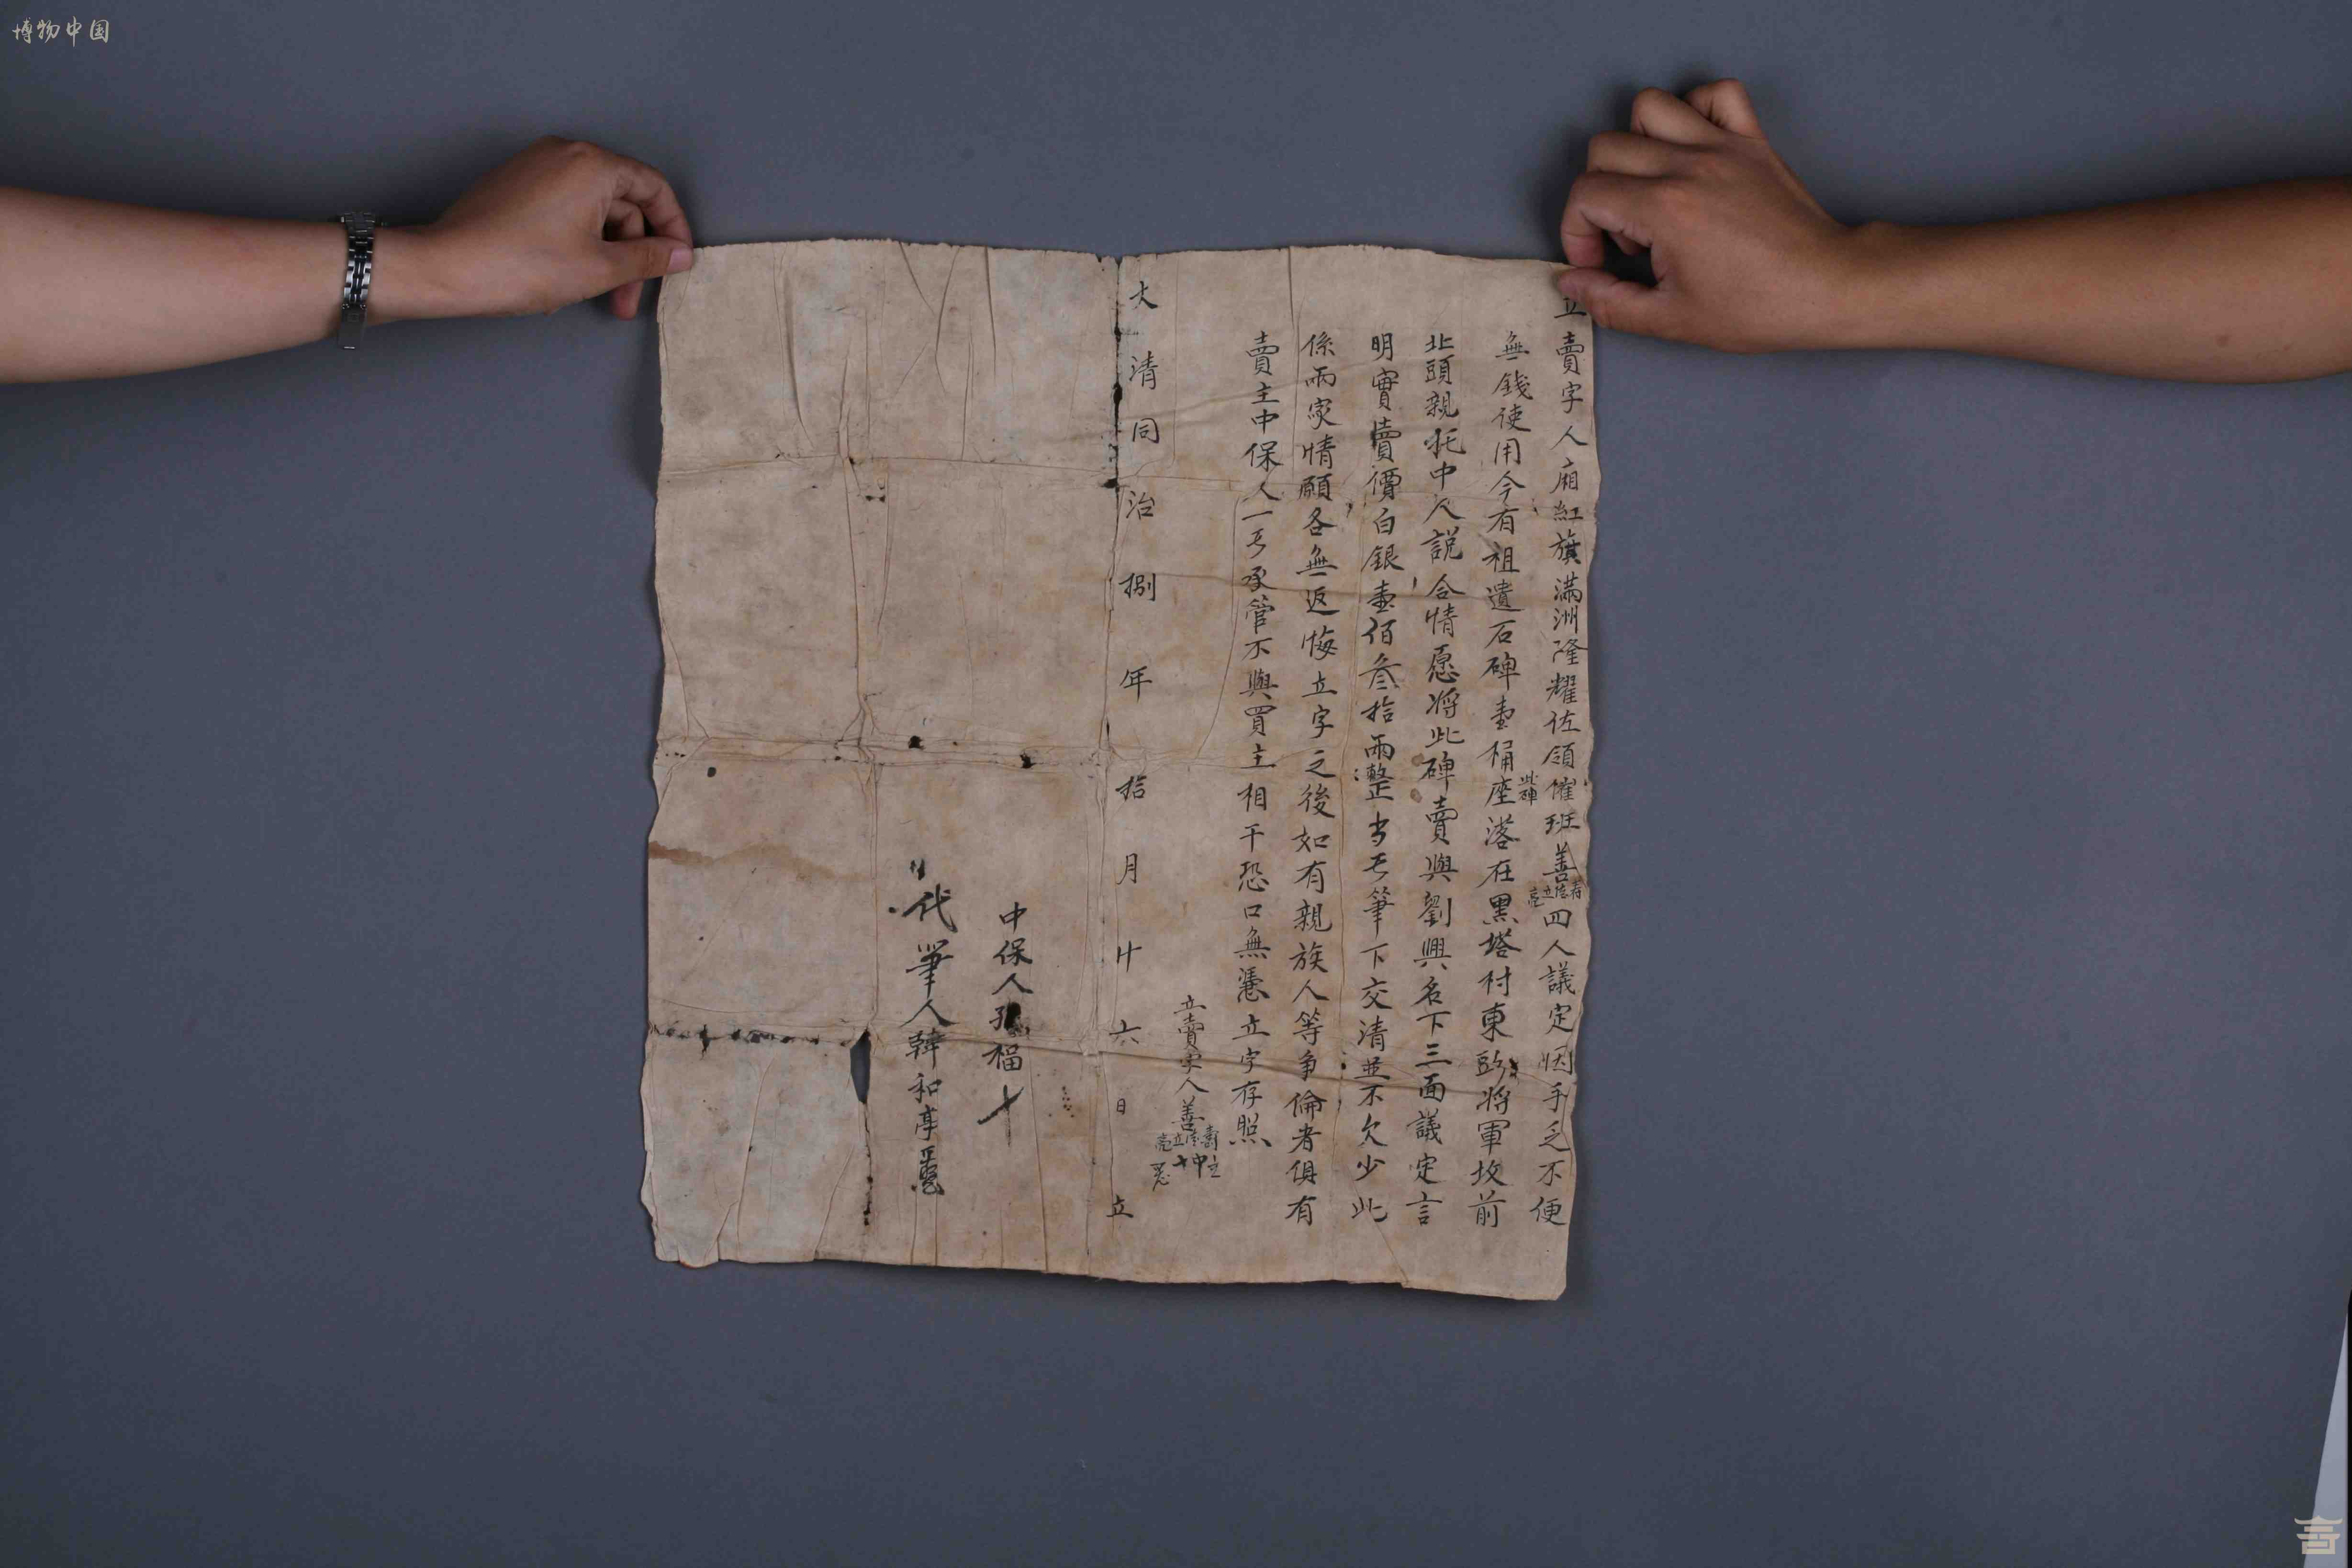 博物中国
立賣字人廂紅旗滿洲隆耀佐領催班善壽陸立亮四人議定因手乏不便
無錢使用今有祖遺石碑壹桶此碑座落在黑塔村東卧將軍坟前
北頭親托中人説合情愿将此碑賣與劉興名下三面議定言
明實賣價白銀壹佰叁拾兩整当下筆下交清並不欠少此
係兩家情願各無返悔立字之後如有親族人等争倫者俱有
賣主中保人一丂承管不與買主相干恐口無憑立字存照
立賣字人善
大清同治捌年拾月廿六日立
中保人 福十
代筆人韓和亭